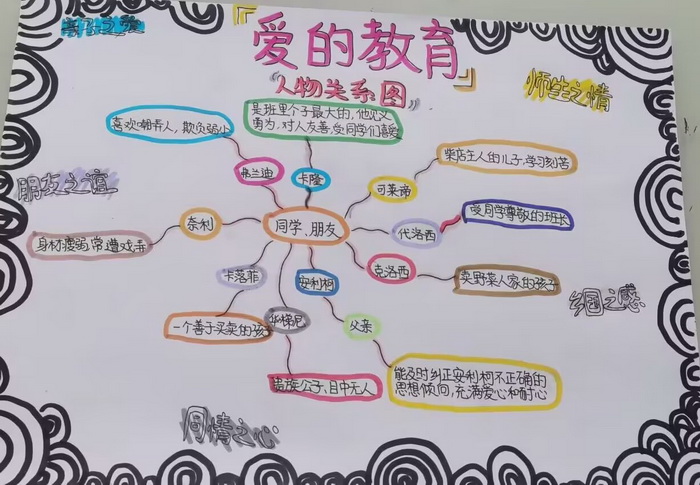 爱的教育
"人物关系图"
师生之情
是班里个子最大的,他见义
勇为,对人友善,受同学们喜爱
喜欢嘲弄人,欺负弱小
弗兰迪
卡隆
可莱蒂
柴店主人的儿子,学习刻苦
朋友之谊
奈利
身材瘦弱,常遭戏弄
同学、朋友
代洛西
受同学尊敬的班长
克洛西
卖野菜人家的孩子
卡洛菲
一个善于买卖的孩子
安利柯
父亲
能及时纠正安利柯不正确的
思想倾向,充满爱心和耐心
华梯尼
贵族公子、目中无人
乡国之感
同情之心